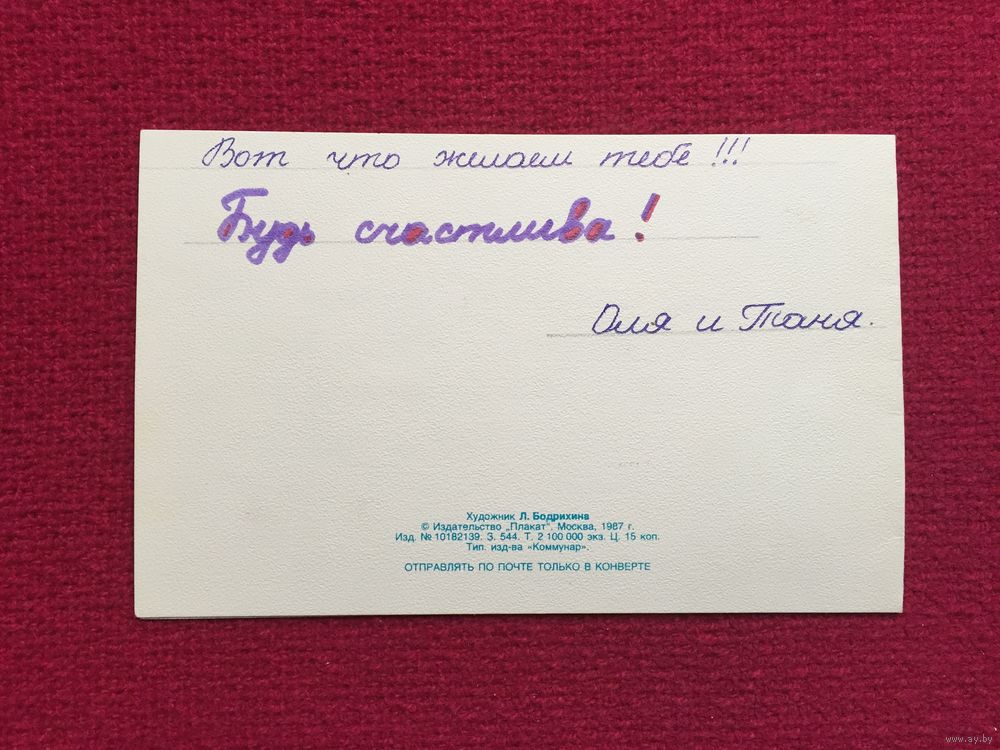 Вот что желаем тебе!!!
Будь счастлива!
Оля и Таня.
Художник Л. Бодрихина
© Издательство „Плакат". Москва, 1987 г.
Изд. № 10182139. З. 544. Т. 2 100 000 экз. Ц. 15 коп.
Тип. изд-ва «Коммунар».
ОТПРАВЛЯТЬ ПО ПОЧТЕ ТОЛЬКО В КОНВЕРТЕ
www.ay.by